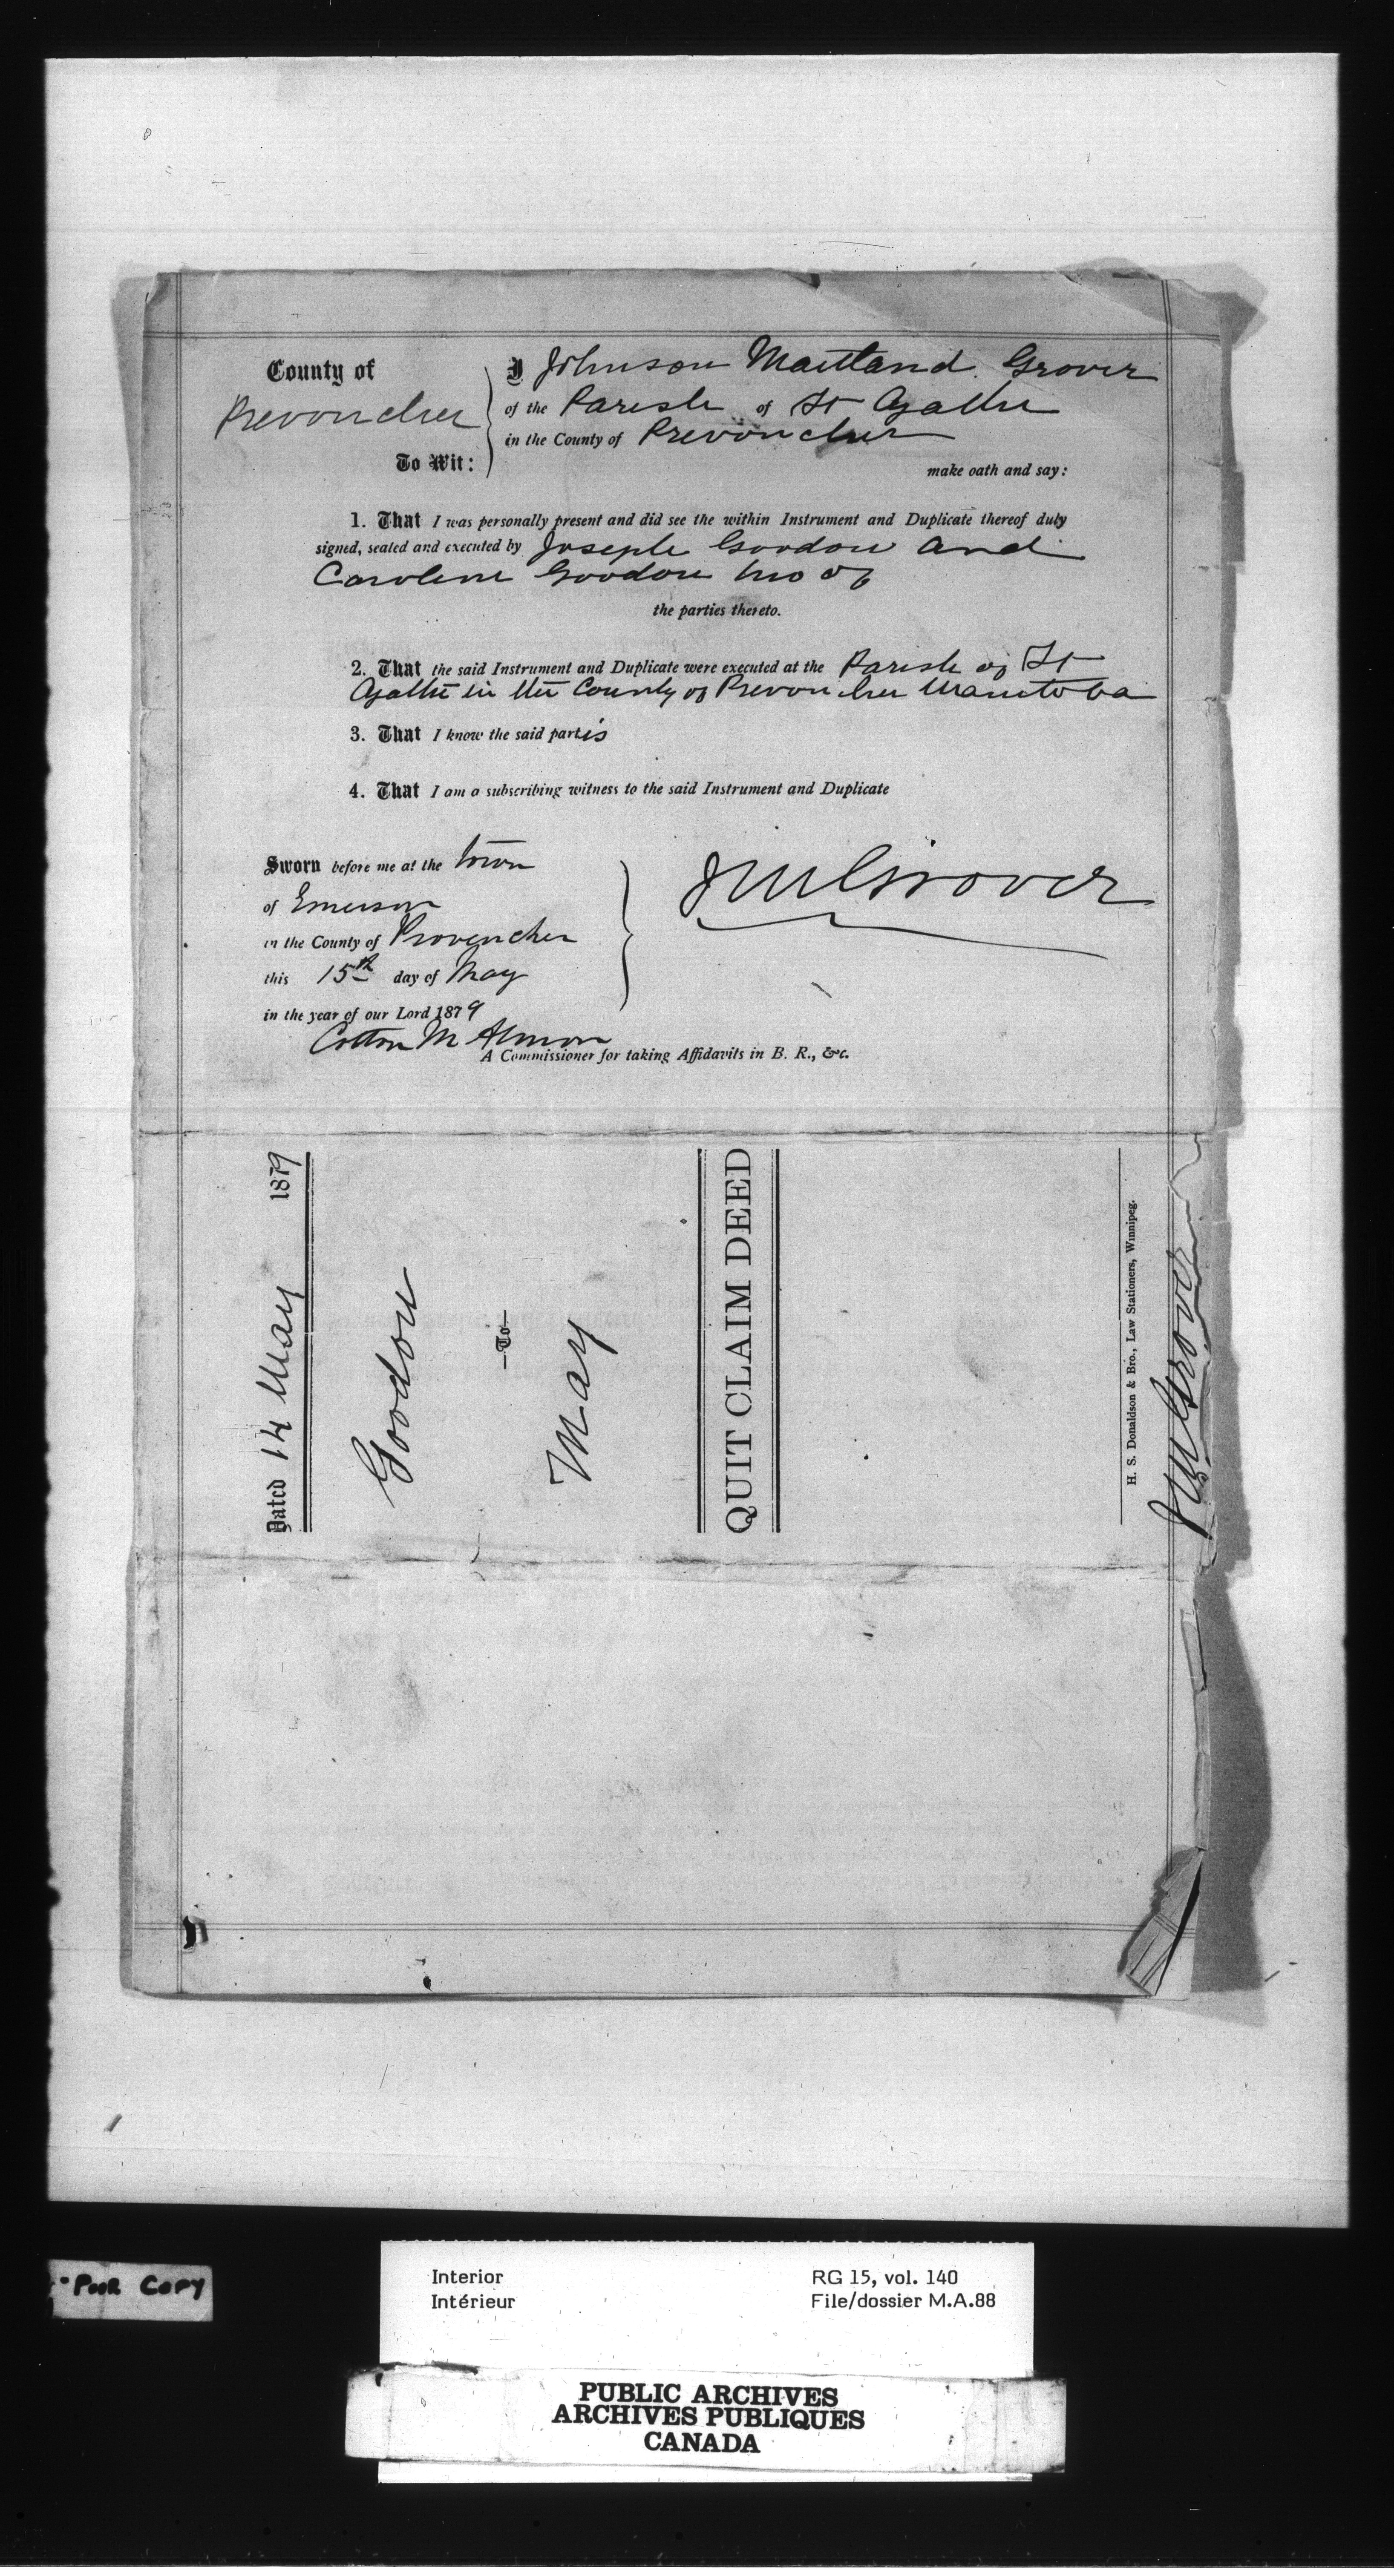 County of
Prevoncher
To Wit:
I Johnson Maitland Grover
of the Parish of St Agathe
in the County of Prevoncher
make oath and say:
1. That I was personally present and did see the within Instrument and Duplicate thereof duly
signed, sealed and executed by Joseph Goodon and
Caroline Goodon two of
the parties thereto.
2. That the said Instrument and Duplicate were executed at the Parish of St
Agathe in the County of Prevoncher Manitoba
3. That I know the said partis
4. That I am a subscribing witness to the said Instrument and Duplicate
Sworn before me at the town
of Emerson
in the County of Provencher
this 15th day of May
in the year of our Lord 1879
Cotton M Almon
A Commissioner for taking Affidavits in B. R., &c.
J M Grover
Dated 14 May 1879
Goodon
—To—
May
QUIT CLAIM DEED
H. S. Donaldson & Bro., Law Stationers, Winnipeg.
J M Grover
"Poor Copy
Interior
Intérieur
RG 15, vol. 140
File/dossier M.A.88
PUBLIC ARCHIVES
ARCHIVES PUBLIQUES
CANADA